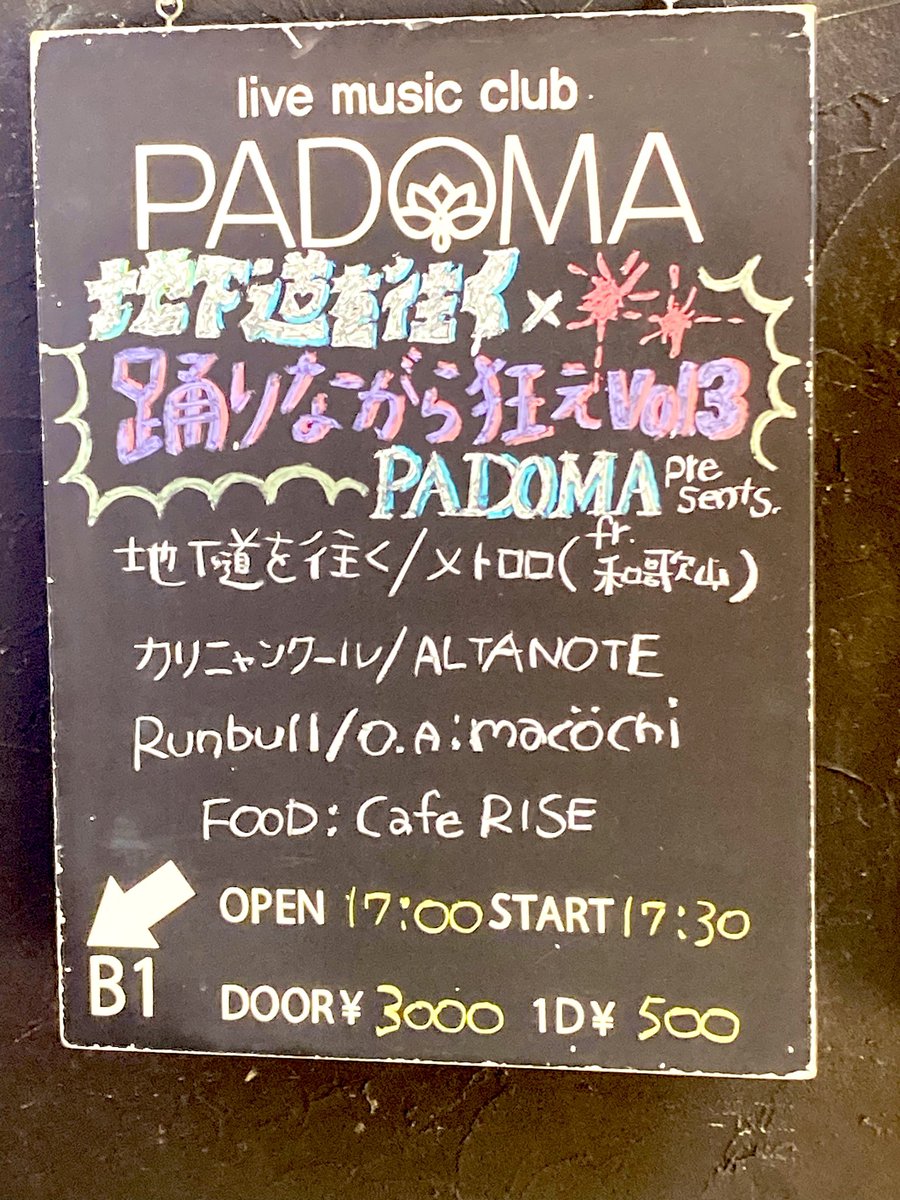 live music club
PADOMA
地下道を往く×
踊りながら狂えVol3
PADOMA presents.
地下道を往く/メトロロ(fr.和歌山)
カリニャンクール/ALTANOTE
Runbull/O.A:macöchi
FOOD: Cafe RISE
OPEN 17:00 START 17:30
B1
DOOR¥ 3000 1D¥ 500